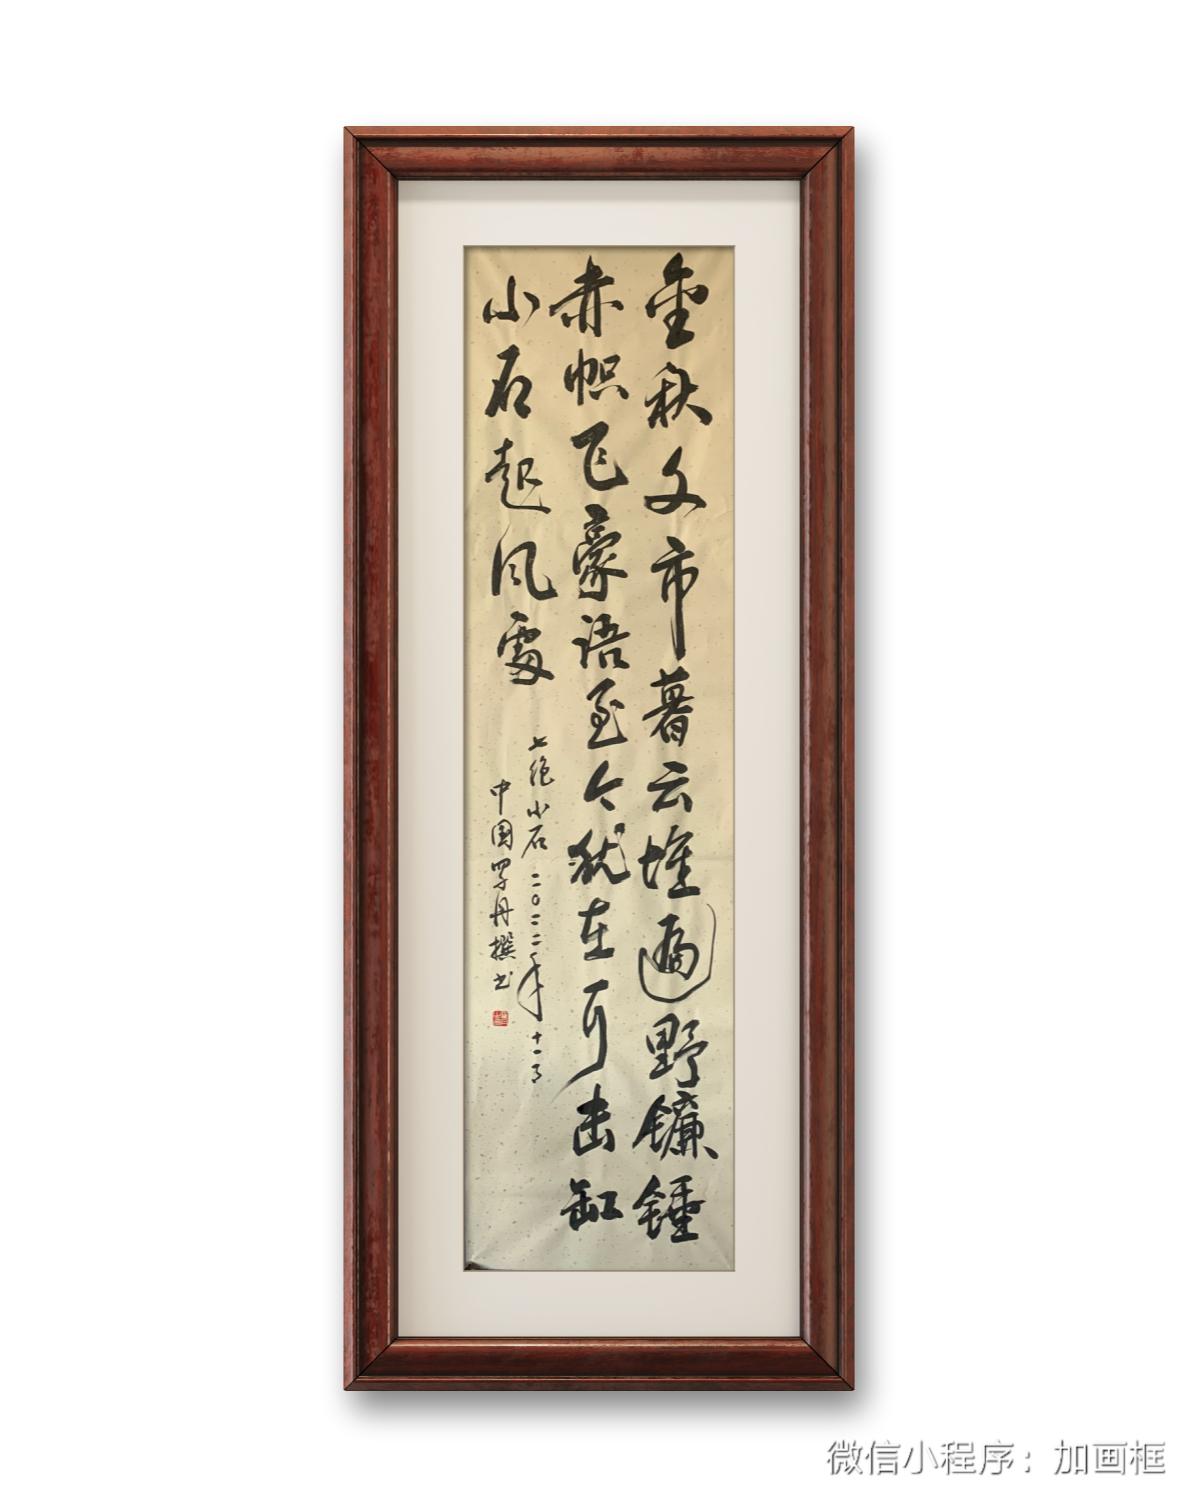 金秋文市暮云堆遍野镰锤
赤帜飞豪语至今犹在耳击缸
小石起风雷
七绝小石 二〇二二年十一月
中国罗丹撰书
微信小程序：加画框